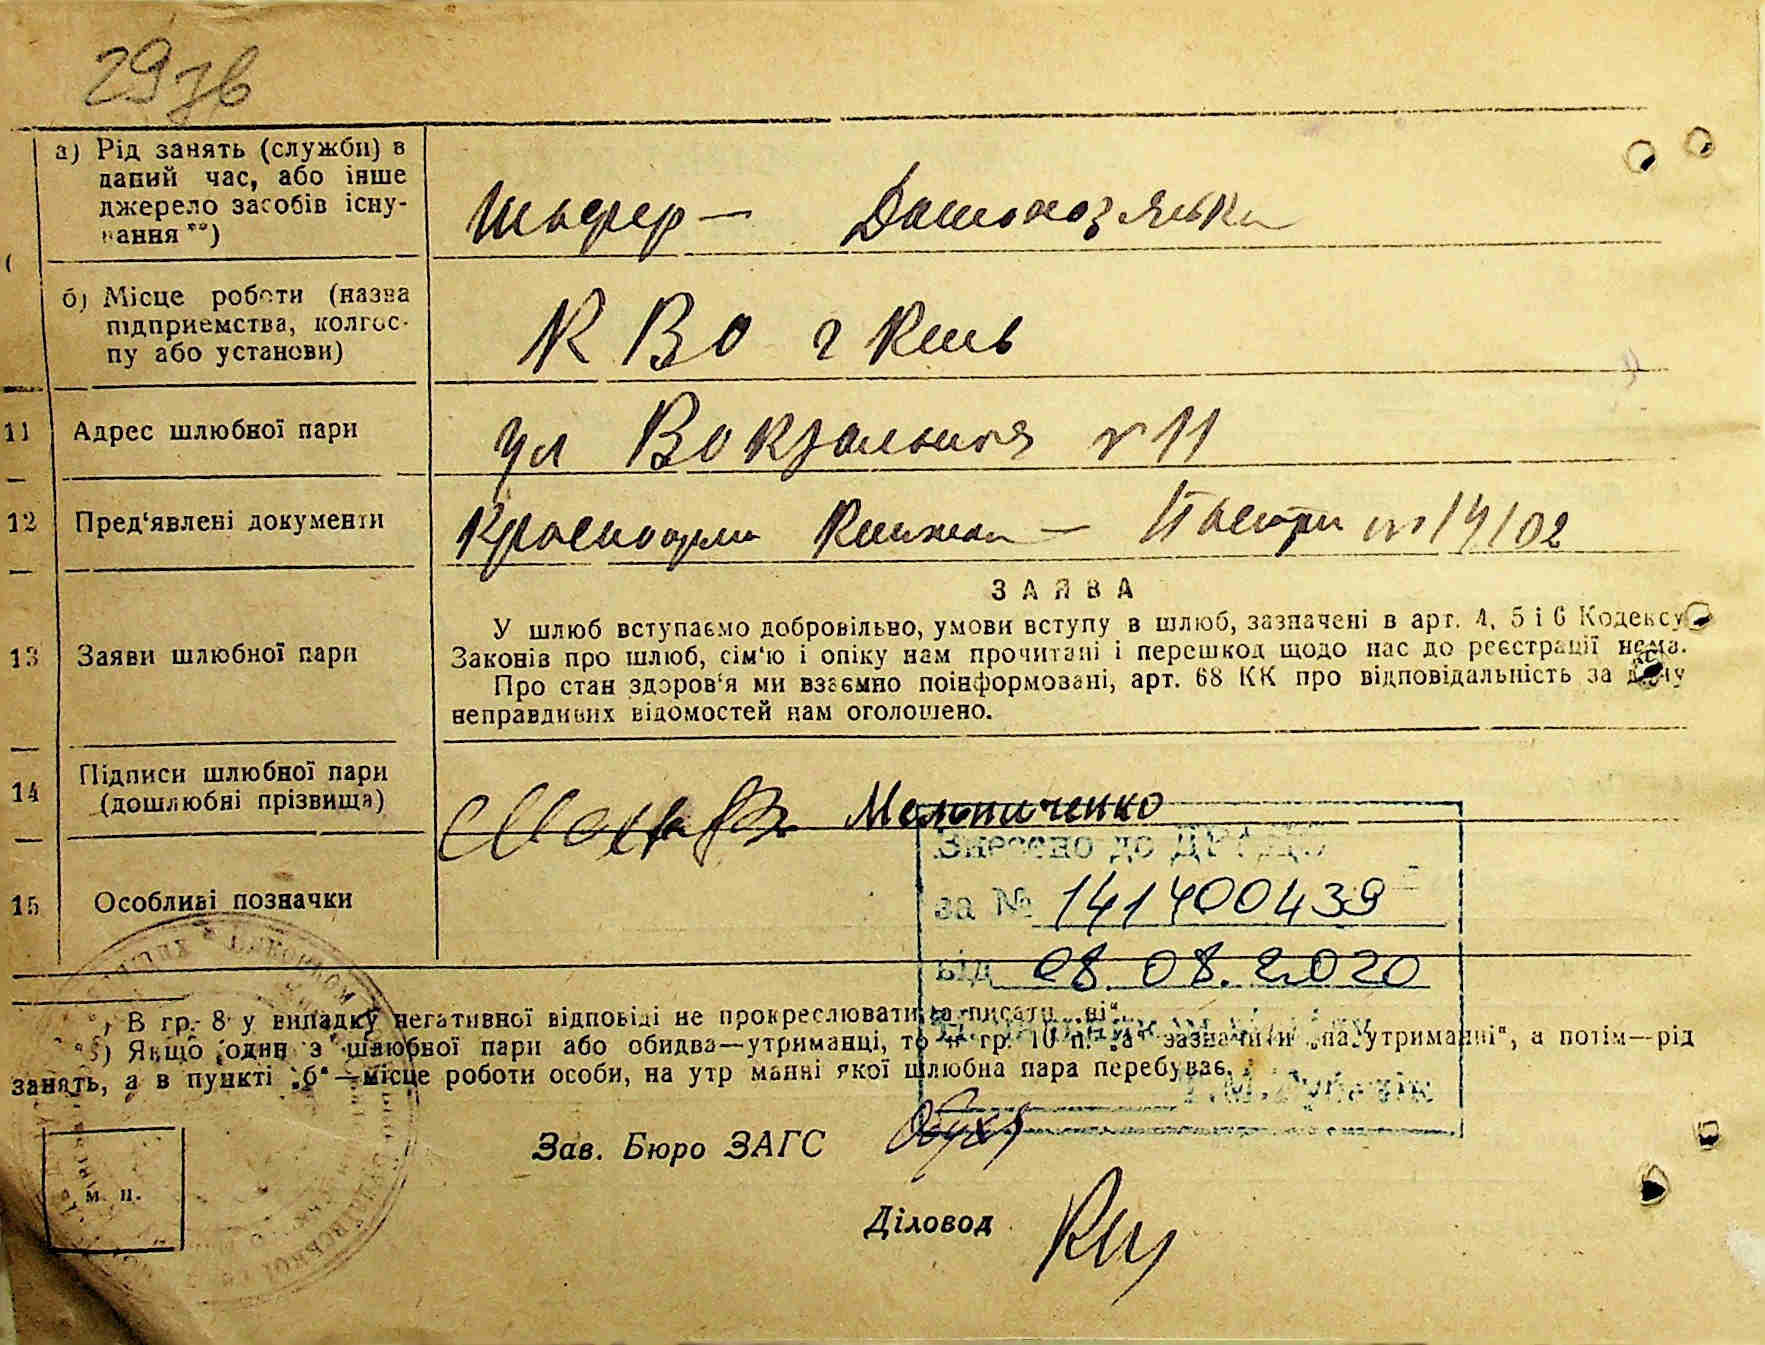 297в
а) Рід занять (служби) в
даний час, або інше
джерело засобів існу-
вання **)
Шофер — Домохозяйка
б) Місце роботи (назва
підприємства, колгос-
пу або установи)
К В О г Киев
11 Адрес шлюбної пари
ул Вокзальная № 11
12 Пред‘явлені документи
Красноарм Книжка — Паспорт № 14/02
ЗАЯВА
13 Заяви шлюбної пари
У шлюб вступаємо добровільно, умови вступу в шлюб, зазначені в арт. 4, 5 і 6 Кодексу
Законів про шлюб, сім‘ю і опіку нам прочитані і перешкод щодо нас до реєстрації нема.
Про стан здоров‘я ми взаємно поінформовані, арт. 68 КК про відповідальність за дачу
неправдивих відомостей нам оголошено.
14 Підписи шлюбної пари
(дошлюбні прізвища)
Мельниченко
15 Особливі позначки
Внесено до
за № 141400439
від 08.08.2020
*) В гр. 8 у випадку негативної відповіді не прокреслювати, а писати „ні“.
**) Якщо один з шлюбної пари або обидва—утриманці, то в гр. 10 п. „а“ зазначити „на утриманні“, а потім—рід
занять, а в пункті „б“—місце роботи особи, на утриманні якої шлюбна пара перебуває.
Зав. Бюро ЗАГС
Діловод
м. п.